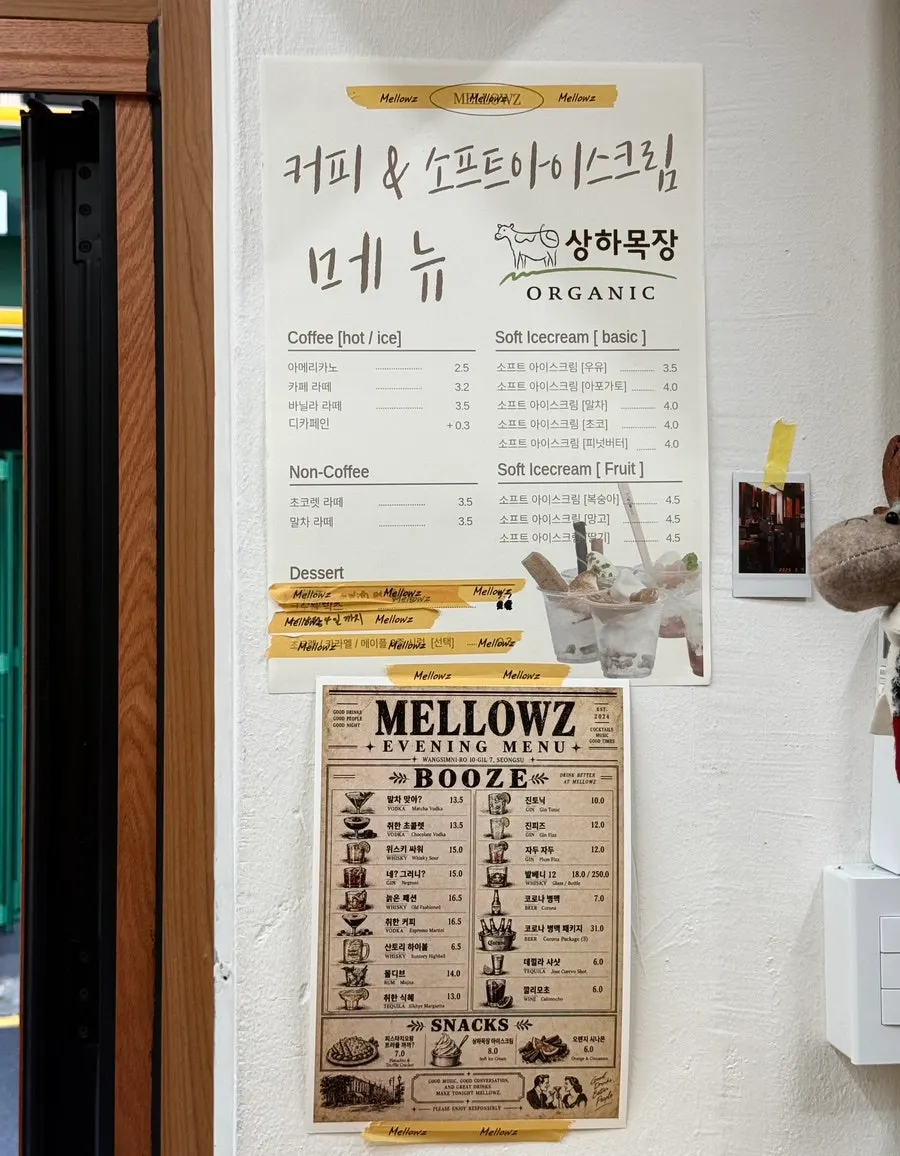 Mellowz MELLOWZ Mellowz
커피 & 소프트아이스크림
메뉴
상하목장
ORGANIC
Coffee [hot / ice]
아메리카노 2.5
카페 라떼 3.2
바닐라 라떼 3.5
디카페인 + 0.3
Non-Coffee
초코렛 라떼 3.5
말차 라떼 3.5
Dessert
Soft Icecream [ basic ]
소프트 아이스크림 [우유] 3.5
소프트 아이스크림 [아포가토] 4.0
소프트 아이스크림 [말차] 4.0
소프트 아이스크림 [초코] 4.0
소프트 아이스크림 [피넛버터] 4.0
Soft Icecream [ Fruit ]
소프트 아이스크림 [복숭아] 4.5
소프트 아이스크림 [망고] 4.5
소프트 아이스크림 [딸기] 4.5
Mellowz Mellowz Mellowz
Mellowz Mellowz
Mellowz Mellowz [선택] Mellowz
Mellowz Mellowz
GOOD DRINKS
GOOD PEOPLE
GOOD NIGHT
MELLOWZ
EST.
2024
COCKTAILS
MUSIC
GOOD TIMES
EVENING MENU
WANGSIMNI-RO 10-GIL 7, SEONGSU
BOOZE
DRINK BETTER
AT MELLOWZ
말차 맞아? 13.5
VODKA Matcha Vodka
취한 초콜렛 13.5
VODKA Chocolate Vodka
위스키 싸워 15.0
WHISKY Whisky Sour
네? 그러니? 15.0
GIN Negroni
늙은 패션 16.5
WHISKY Old Fashioned
취한 커피 16.5
VODKA Espresso Martini
산토리 하이볼 6.5
WHISKY Suntory Highball
몰디브 14.0
RUM Mojito
취한 식혜 13.0
TEQUILA Sikhye Margarita
진토닉 10.0
GIN Gin Tonic
진피즈 12.0
GIN Gin Fizz
자두 자두 12.0
GIN Plum Fizz
발베니 12 18.0 / 250.0
WHISKY Glass / Bottle
코로나 병맥 7.0
BEER Corona
코로나 병맥 패키지 31.0
BEER Corona Package (5)
데낄라 샤샷 6.0
TEQUILA Jose Cuervo Shot
깔리모초 6.0
WINE Calimocho
SNACKS
피스타치오랑
트러플 까까?
7.0
Pistachio &
Truffle Cracker
상하목장 아이스크림
8.0
Soft Ice Cream
오렌지 시나몬
6.0
Orange & Cinnamon
GOOD MUSIC, GOOD CONVERSATION,
AND GREAT DRINKS
MAKE TONIGHT MELLOWZ.
PLEASE ENJOY RESPONSIBLY
Good
Drinks
Better
People
Mellowz Mellowz